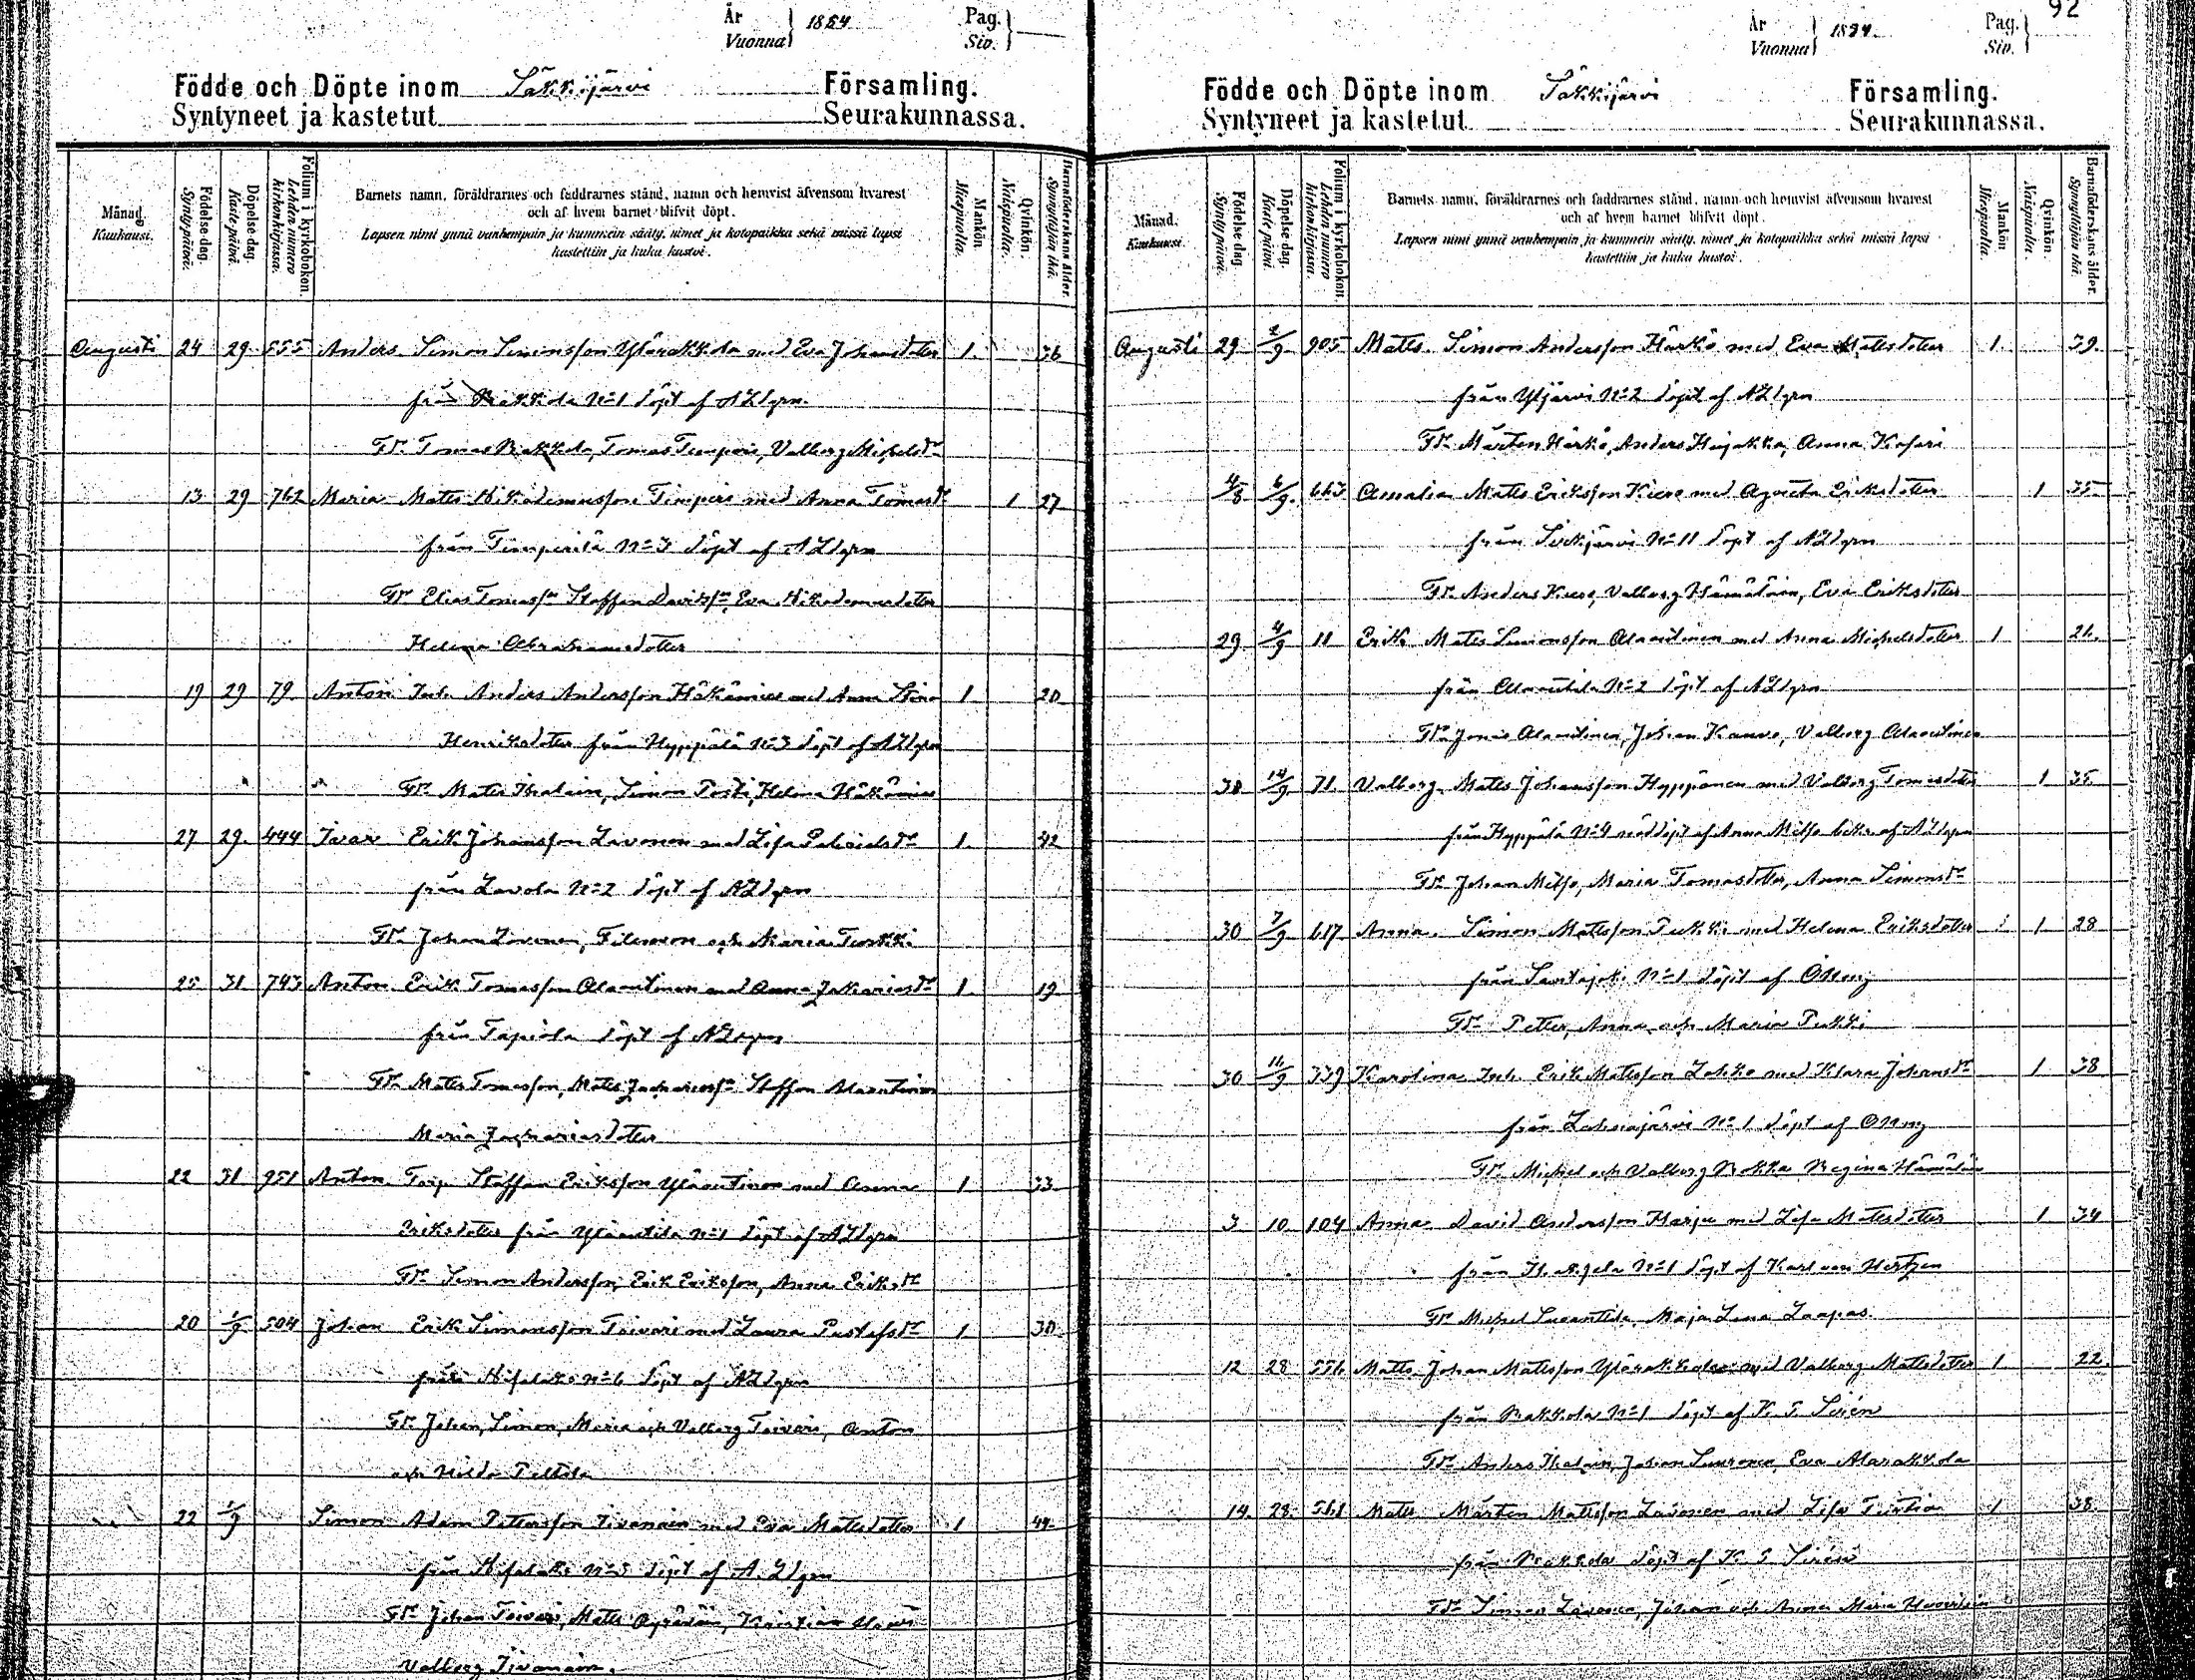 År
Vuonna } 1884
Pag.
Siv. }
Födde och Döpte inom Säkkijärvi Församling.
Syntyneet ja kastetut Seurakunnassa.
Månad. Kuukausi.
Födelse-dag. Syntypäivä.
Döpelse-dag. Kastepäivä.
Folium i kyrkoboken. Lehden numero kirkonkirjassa.
Barnets namn, föräldrarnes och faddrarnes stånd, namn och hemvist äfvensom hvarest
och af hvem barnet blifvit döpt.
Lapsen nimi ynnä vanhempain ja kummein sääty, nimet ja kotopaikka sekä missä lapsi
kastettiin ja kuka kastoi.
Mankön. Miespuolta.
Qvinkön. Naispuolta.
Barnaföderskans ålder. Synnyttäjän ikä.
Augusti 24 29 555 Anders Simon Simonsson Ylärakkola med Eva Johansdotter 1. 36
från Rakkola No 1 döpt af
Fdr Tomas Rakkola, Tomas Timperi, Valborg Michelsdr
13 29 762 Maria Matts Nikodemusson Timperi med Anna Tomasdr 1 27
från Timperilä No 3 döpt af
Fdr Elias Tomasson Staffan Davidsson, Eva Nikodemusdotter
Helena Abrahamsdotter
19 29 79 Anton Inh. Anders Andersson Häkämies med Anna Stina 1 20
Henriksdotter från Hyppälä No 3 döpt af
Fdr Matts Ihalain, Simon Posti, Helena Häkämies
27 29 444 Ivar Erik Johansson Lavonen med Lisa 1. 42
från Lavola No 2 döpt af
Fdr Johan Lavonen, Filemon och Maria Turkki
25 31 743 Anton Erik Tomasson Alaoutinen med Anna Zakariasdr 1. 19
från Tapiola döpt af
Fdr Matts Tomasson, Matts Zachariasson Staffan Alaoutinen
Maria Zachariasdotter
22 31 951 Anton Torp. Staffan Eriksson Yläoutinen med Anna 1 33
Eriksdotter från Yläoutila No 1 döpt af
Fdr Simon Andersson, Erik Eriksson, Anna Eriksdr
20 1/9 504 Johan Erik Simonsson Toivari med Laura Gustafsdr 1 30
från No 6 döpt af
Fdr Johan, Simon, Maria och Valborg Toivari, Anton
och Hilda Peltola
22 1/9 Simon Adam Pettersson Tivanain med Eva Mattsdotter 1 44
från No 5 döpt af
Fdr Johan Toivari, Matts Kristian
Valborg Tivanain.
92
År
Vuonna } 1884.
Pag.
Siv. }
Födde och Döpte inom Säkkijärvi Församling.
Syntyneet ja kastetut Seurakunnassa.
Månad. Kuukausi.
Födelse dag. Syntypäivä.
Döpelse-dag. Kastepäivä.
Folium i kyrkoboken. Lehden numero kirkonkirjassa.
Barnets namn, föräldrarnes och faddrarnes stånd, namn och hemvist äfvensom hvarest
och af hvem barnet blifvit döpt.
Lapsen nimi ynnä vanhempain ja kummein sääty, nimet ja kotopaikka sekä missä lapsi
kastettiin ja kuka kastoi.
Mankön. Miespuolta.
Qvinkön. Naispuolta.
Barnaföderskans ålder. Synnyttäjän ikä.
Augusti 29 2/9 905 Matts Simon Andersson Härkö med Eva Mattsdotter 1. 39.
från Ylijärvi No 2 döpt af
Fdr Mårten Härkö, Anders Hujakka, Anna Kaspri
4/8 6/9 663 Amalia Matts Eriksson Kiere med Agneta Eriksdotter 1 35
från Sirkjärvi No 11 döpt af
Fdr Anders Kiere, Valborg Hämäläin, Eva Eriksdotter
29 4/9 11 Erik Matts Simonsson Alaoutinen med Anna Michelsdotter 1 26.
från Alaoutila No 2 döpt af
Fdr Jonas Alaoutinen, Johan Kanvo, Valborg Alaoutinen
30 14/9 71 Valborg Matts Johansson Hyppänen med Valborg Tomasdotter 1 35
från Hyppälä No 4 nöddöpt af Anna Mitso bekr. af
Fdr Johan Mitso, Maria Tomasdotter, Anna Simonsdr
30 7/9 617 Anna. Simon Mattsson Pukki med Helena Eriksdotter 1 28
från Santajoki No 1 döpt af
Fdr Petter, Anna och Maria Pukki
30 11/9 339 Karolina Inh. Erik Mattsson Lakko med Klara Johansdr 1 38
från No 1 döpt af
Fdr Michel och Valborg Rokka Regina Hämäläin
3 10 104 Anna David Andersson Harju med Lisa Mattsdotter 1 34
från No 1 döpt af Karl von Hertzen
Fdr Michel Maja Lena Laapas.
12 28 556 Matts Johan Mattsson Ylärakkola med Valborg Mattsdotter 1 22.
från Rakkola No 1 döpt af K. G. Sirén
Fdr Anders Ihalain, Johan Suuronen, Eva Alarakkola
14. 28. 561 Matts Mårten Mattsson Lavonen med Lisa 1 38.
från Rakkola döpt af K G Sirén
Fdr Simon Lavonen, Johan och Anna Maria